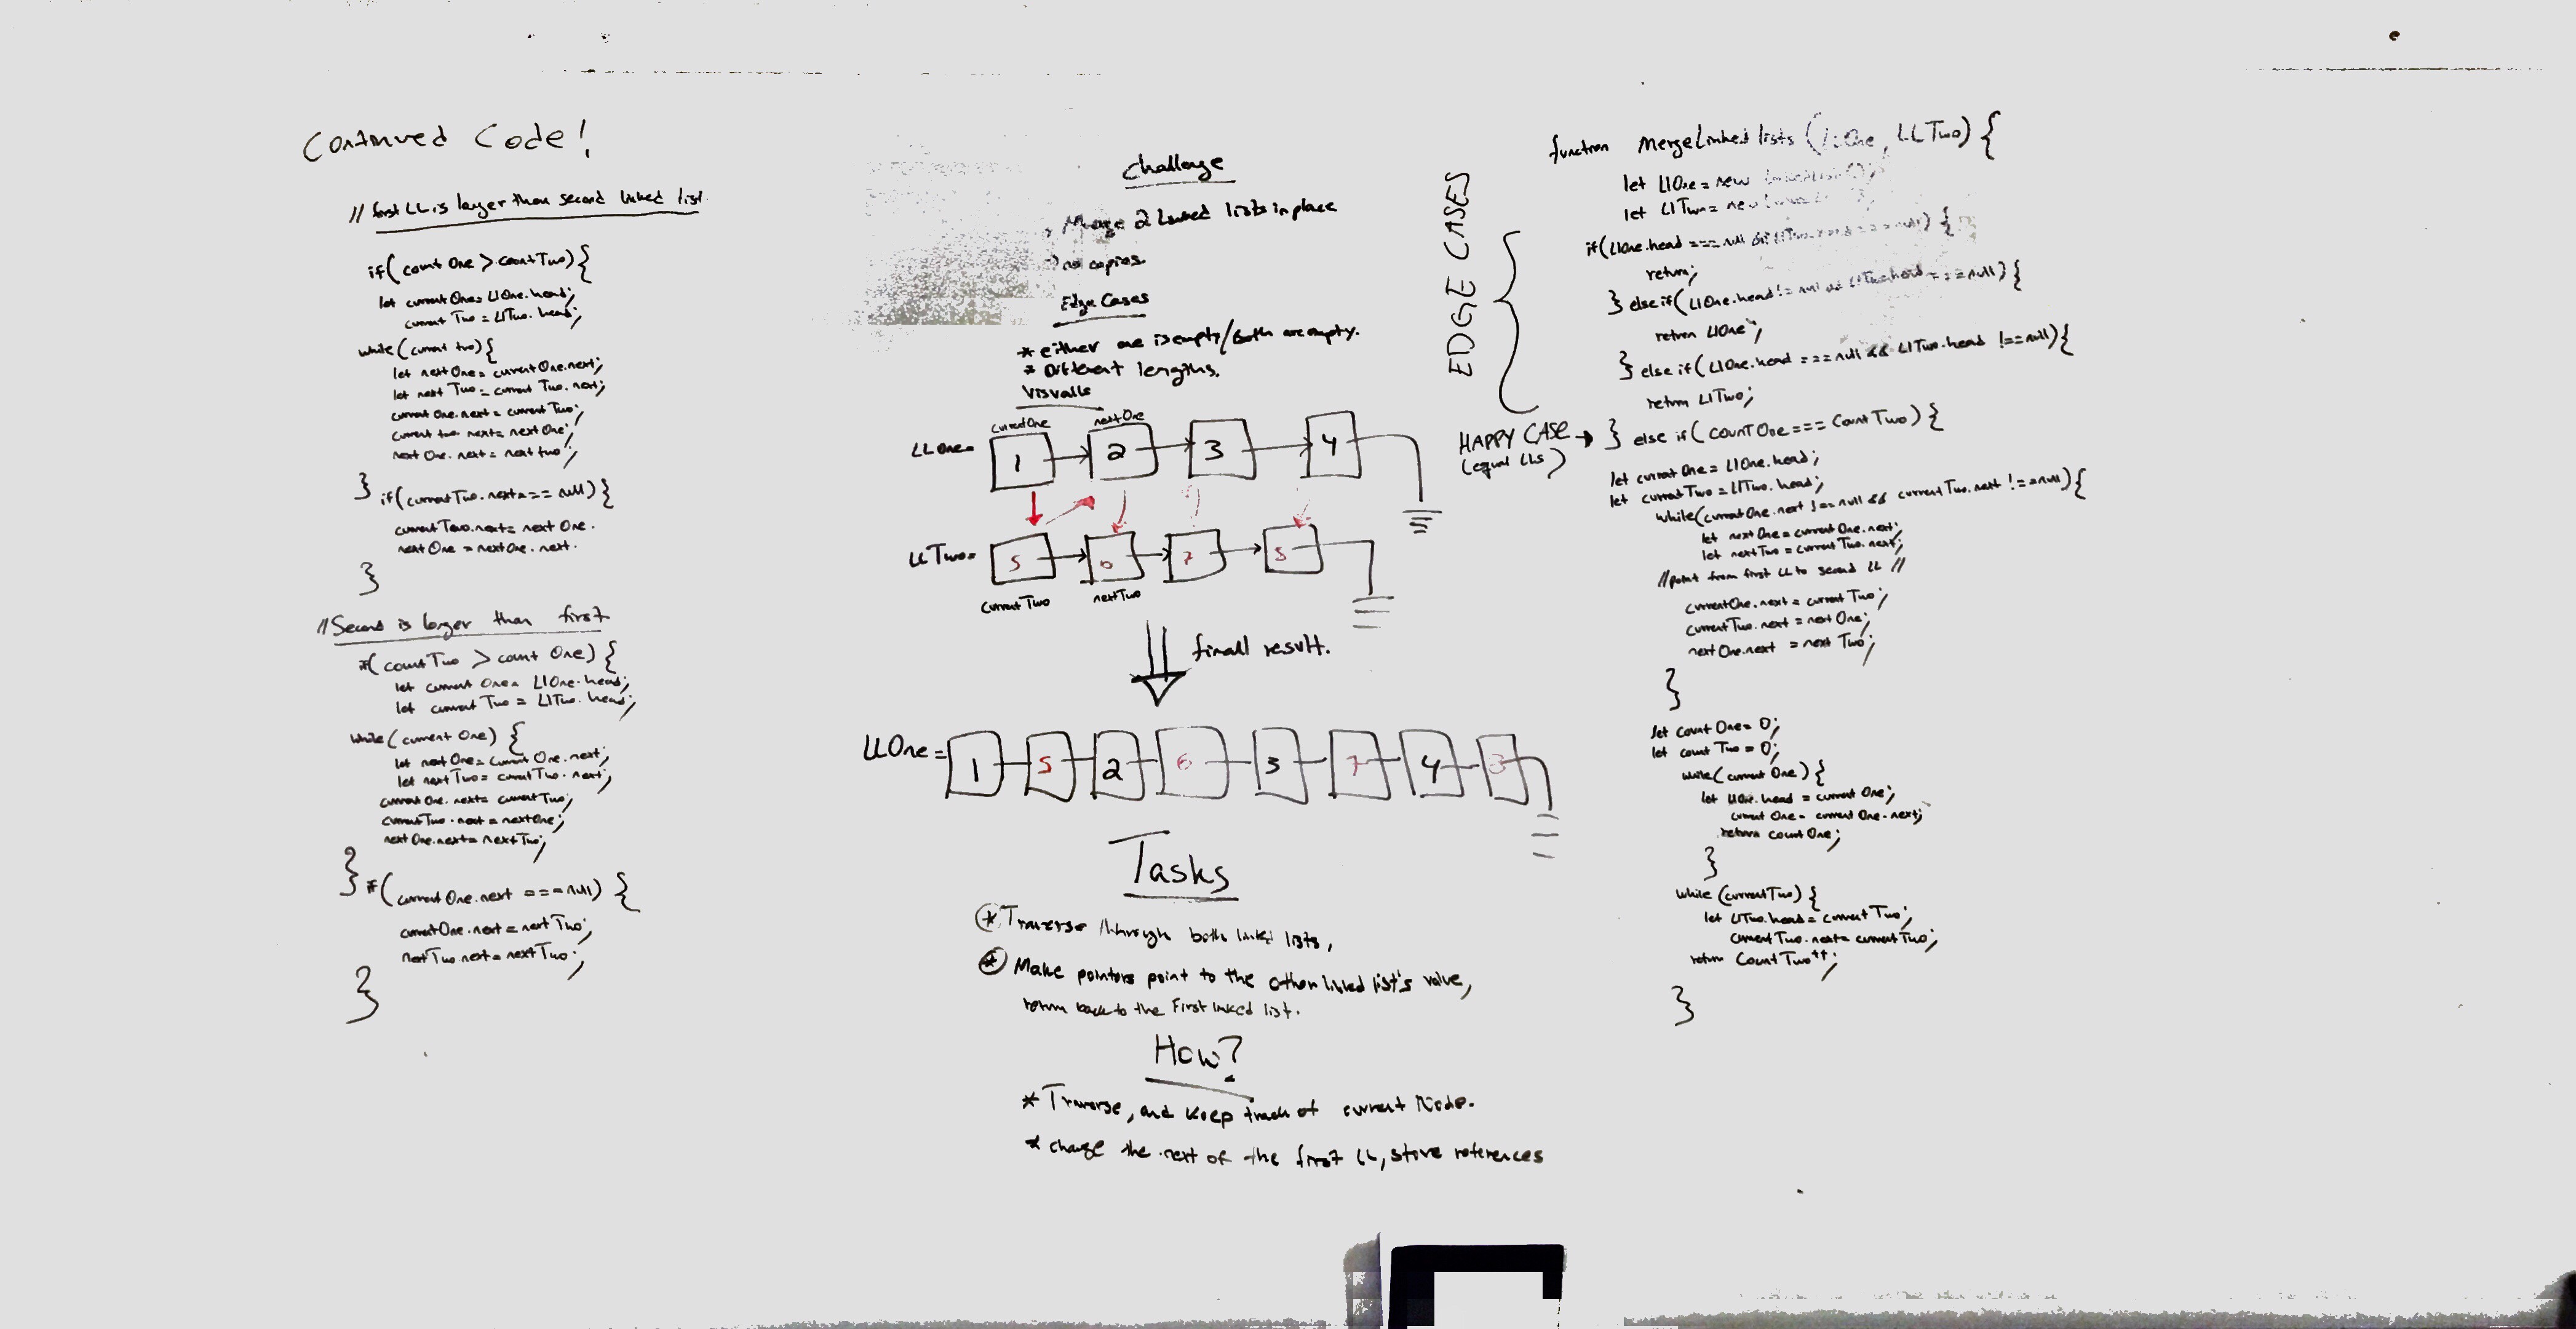 Continued Code!
// first LL is larger than second linked list.
if(count One > count Two){
let current One = LlOne.head;
current Two = LlTwo.head;
while(current two){
let next One = current One.next;
let next Two = current Two.next;
current One.next = current Two;
current two.next = next One;
next One.next = next two;
} if(current Two.next === null){
current Two.next = next One.
next One = next One.next.
}
// Second is larger than first
if(count Two > count One){
let current One = LlOne.head;
let current Two = LlTwo.head;
while(current One) {
let next One = current One.next;
let next Two = current Two.next;
current One.next = current Two;
current Two.next = next One;
next One.next = next Two;
} if(current One.next === null) {
current One.next = next Two;
next Two.next = next Two;
}
Challenge
Merge 2 Linked lists in place
no copies.
Edge Cases
* either one is empty/both are empty.
* Different lengths.
Visualls
currentOne nextOne
LLOne= 1 2 3 4
LLTwo= 5 6 7 8
currentTwo nextTwo
finall result.
LLOne= 1 5 2 6 3 7 4 8
Tasks
* Traverse through both linked lists,
* Make pointors point to the other linked list's value,
return back to the First linked list.
How?
* Traverse, and keep track of current Node.
* change the .next of the first LL, store references
EDGE CASES
function MergeLinked lists (LlOne, LLTwo) {
let LlOne = new
let LlTwo = new
if(LlOne.head === null && LlTwo.head === null) {
return;
} else if(LlOne.head != null && LlTwo.head === null){
return LlOne;
} else if(LlOne.head === null && LlTwo.head !== null){
return LlTwo;
HAPPY CASE → } else if(countOne === countTwo) {
(equal LLs)
let current One = LlOne.head;
let current Two = LlTwo.head;
while(currentOne.next !== null && currentTwo.next !== null){
let next One = current One.next;
let next Two = current Two.next;
//point from first LL to second LL //
currentOne.next = current Two;
currentTwo.next = next One;
next One.next = next Two;
}
let count One = 0;
let count Two = 0;
while(current One){
let LlOne.head = current One;
current One = current One.next;
return count One;
}
while (currentTwo) {
let LlTwo.head = current Two;
current Two.next = current Two;
return Count Two++;
}